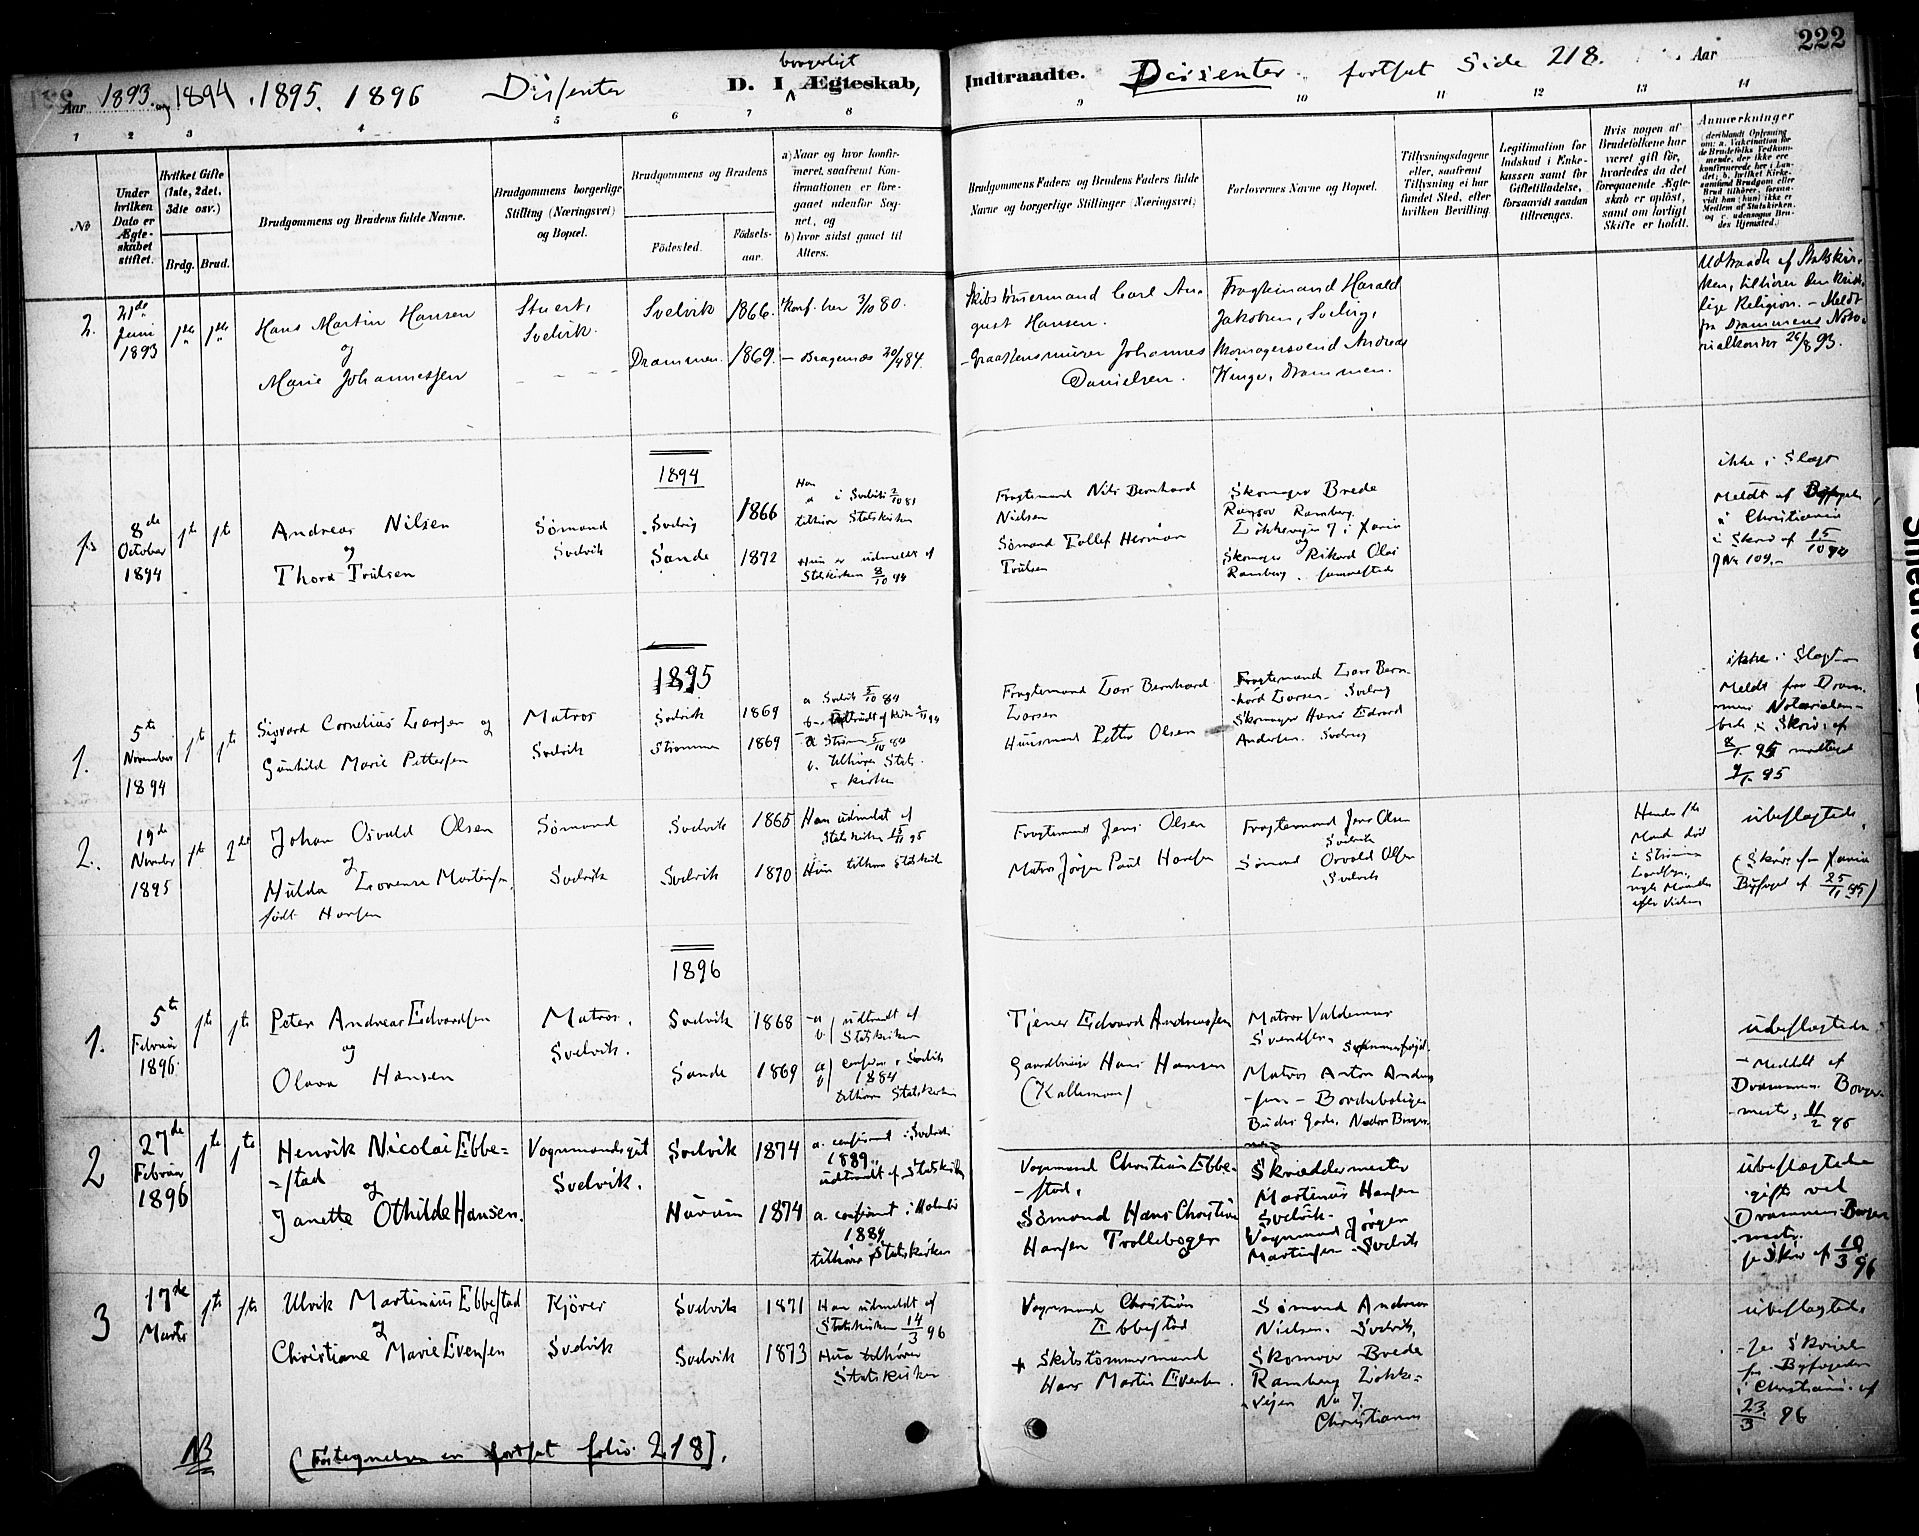 222
Aar 1893 og 1894, 1895. 1896 Dissenter D. I borgerligt Ægteskab, Indtraadte. Dissenter. fortsat Side 218. Aar
1 2 3 4 5 6 7 8 9 10 11 12 13 14
No
Under hvilken Dato er Ægteskabet stiftet.
Hvilket Gifte (1ste, 2det, 3die osv.)
Brdg. Brud.
Brudgommens og Brudens fulde Navne.
Brudgommens borgerlige Stilling (Næringsvei) og Bopæl.
Brudgommens og Brudens
Fødested.
Fødselsaar.
a) Naar og hvor konfirmeret, saafremt Konfirmationen er foregaaet udenfor Sognet, og
b) hvor sidst gaaet til Alters.
Brudgommens Faders og Brudens Faders fulde Navne og borgerlige Stillinger (Næringsvei)
Forlovernes Navne og Bopæl.
Tillysningsdagene eller, saafremt Tillysning ei har fundet Sted, efter hvilken Bevilling.
Legitimation for Indskud i Enkekassen samt for Giftetilladelse, forsaavidt saadan tiltrænges.
Hvis nogen af Brudefolkene har været gift før, hvorledes da det foregaaende Ægteskab er opløst, samt om lovligt Skifte er holdt.
Anmærkninger
2. 21de Juni 1893 1ste 1ste
Hans Martin Hansen
og
Marie Johannessen
Stuert,
Svelvik.
Svelvik 1866. Konf. her 3/10 80.
Drammen. 1869. – Bragernæs 20/4 84.
Skibstømmermand Carl August Hansen.
– Graastensmurer Johannes Danielsen.
Fragtemand Harald Jakobsen, Svelvig,
Skomagersvend Andreas , Drammen.
Udtraadte af Statskirken, tilhører den
Religion. – Meldt
fra Drammens 26/8 93.
1894
1. 8de October 1894 1st 1st
Andreas Nilsen
og
Thora Trulsen
Sømand
Svelvik
Svelvig 1866
Sande 1872
Han i Svelvik 2/10 81
tilhører Statskirken
Hun er udmeldt af
Statskirken 8/10 94
Fragtemand Nils Bernhard
Nielsen
Sømand Tollef Herman
Trulsen
Skomager Brede
Ramberg
Løkkeveien 7 i Xania
og
Skomager Rikard Olai
Ramberg. sammesteds
ikke i Slægt
Meldt af Byfogden
i Christiania
i Skriv af 15/10 94
JNo 109.–
1895
1. 5te November 1894 1st 1st
Sigvard Cornelius Larsen og
Gunhild Marie Pettersen
Matros
Svelvik
Svelvik 1869
Strømmen 1869
a Svelvik 5/10 84
b. Udtraadt af Kirken
a Strøm 5/10 84
b. tilhører Stats-
kirken
Fragtemand Lars Bernhard
Larsen
Huusmand Petter Olsen
Fragtemand Lars Bern-
hard Larsen – Svelvig
Skomager Hans Edvard
Andersen. Svelvig
ikke i Slægt –
Meldt fra Dram-
mens
i Skriv. af
8/1 95 modtaget
9/1 95
2. 19de November 1895 1st 2det
Johan Osvald Olsen
og
Hulda Lovense Martinsen,
født Hansen
Sømand
Svelvik
Svelvik 1865
Svelvik 1870
Han udmeldt af
Statskirken 15/11 95
Hun tilhører Statskirken
Fragtemand Jens Olsen
Matros Jørgen Paul Hansen
Fragtemand Jens Olsen
Svelvik
Sømand Osvald Olsen
Svelvik
Hendes 1ste
Mand død
i Strømm
ubeslægtede.
(Skriv. fra Xania
Byfoged af 25/11 95)
1896
1. 5te Februar 1896. 1te 1te
Peter Andreas Edvardsen
og
Olava Hansen
Matros.
Svelvik.
Svelvik 1868
Sande 1869
a) b) udtraadt af
Statskirken
a) confirm. i Svelvik
1884
b) tilhører Statskirken
Tjener Edvard Andreassen
Gaardbruger Hans Hansen
(Kallemoen)
Matros Valdemar
Svendsen.
Matros Anton Anders-
sen –
ubeslægtede.
– Meddelt af
Drammens Borger-
mester 11/2 96
2 27de Februar 1896 1te 1te
Henrik Nicolai Ebbe=
=stad
og
Janette Othilde Hansen.
Vognmandsgut
Svelvik.
Svelvik 1874
Hurum 1874
a. confirmt i Svelvik
1889.
udtraadt af Statskirken
a. confirmt i Holmsbo
1889
tilhører Statskirken
Vognmand Christian Ebbe-
-stad.
Sømand Hans Christian
Hansen Trolleboger
Skræddermester
Martinus Hansen
Svelvik.
Vognmand Jørgen
Martinsen – Svelvik
ubeslægtede
gifte ved
Drammens Borger-
mester
Skriv af 10/3 96
3 17de Marts 1te 1te
Ulrik Martinius Ebbestad
og
Christiane Marie Evensen
Kjører
Svelvik
Svelvik 1871
Svelvik 1873
Han udmeldt af
Statskirken 14/3 96
Hun tilhører
Statskirken
Vognmand Christian
Ebbestad
+ Skibstømmermand
Hans Martin Evensen.
Sømand Andreas
Nielsen. Svelvik,
Skomager Brede
Ramberg Løkke=
veien No 7.
Christiania
ubeslægtede.
– Skrivelse
fra Byfogeden
i Christiania af
23/3 96
NB (Fortegnelsen er fortsat folio 218).